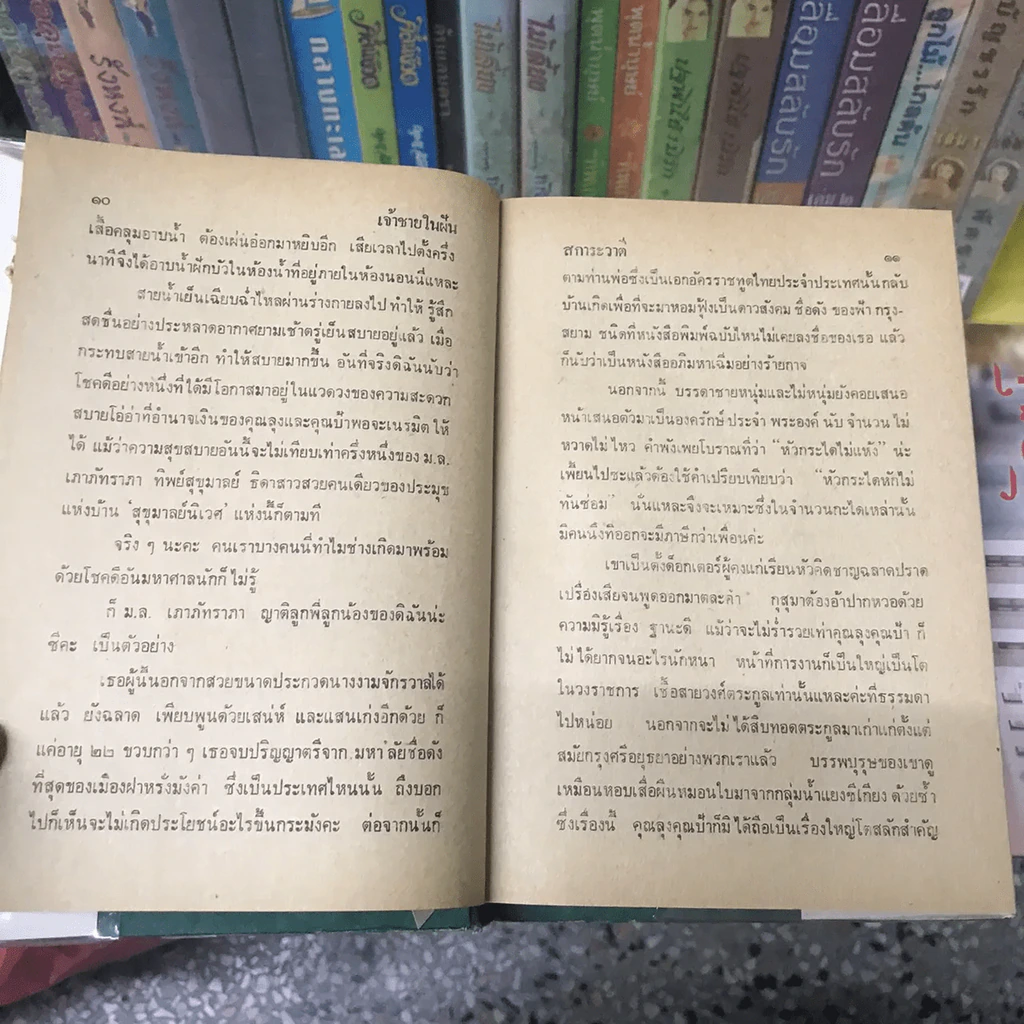 รักเอย
กลางทะเล
ไม้เดียง
ไม้เดียง
เลื่อมสลับรัก
เลื่อมสลับรัก
ลูกไม้...ไกลต้น
๑๐
เจ้าชายในฝัน
เสื้อคลุมอาบน้ำ ต้องเผ่นออกมาหยิบอีก เสียเวลาไปตั้งครึ่ง
นาทีจึงได้อาบน้ำฝักบัวในห้องน้ำที่อยู่ภายในห้องนอนนี่แหละ
สายน้ำเย็นเฉียบฉ่ำไหลผ่านร่างกายลงไป ทำให้ รู้สึก
สดชื่นอย่างประหลาดอากาศยามเช้าตรู่เย็นสบายอยู่แล้ว เมื่อ
กระทบสายน้ำเข้าอีก ทำให้สบายมากขึ้น อันที่จริงดิฉันนับว่า
โชคดีอย่างหนึ่งที่ได้มีโอกาสมาอยู่ในแวดวงของความสะดวก
สบายโอ่อ่าที่อำนาจเงินของคุณลุงและคุณป้าพอจะเนรมิต ให้
ได้ แม้ว่าความสุขสบายอันนี้จะไม่เทียบเท่าครึ่งหนึ่งของ ม.ล.
เภาภัทราภา ทิพย์สุขุมาลย์ ธิดาสาวสวยคนเดียวของประมุข
แห่งบ้าน 'สุขุมาลย์นิเวศ' แห่งนี้ก็ตามที
จริง ๆ นะคะ คนเราบางคนนี่ทำไมช่างเกิดมาพร้อม
ด้วยโชคดีอันมหาศาลนักก็ไม่รู้
ก็ ม.ล. เภาภัทราภา ญาติลูกพี่ลูกน้องของดิฉันน่ะ
ซีคะ เป็นตัวอย่าง
เธอผู้นี้นอกจากสวยขนาดประกวดนางงามจักรวาลได้
แล้ว ยังฉลาด เพียบพูนด้วยเสน่ห์ และแสนเก่งอีกด้วย ก็
แค่อายุ ๒๒ ขวบกว่า ๆ เธอจบปริญญาตรีจาก มหาลัยชื่อดัง
ที่สุดของเมืองฝาหรั่งมังค่า ซึ่งเป็นประเทศไหนนั้น ถึงบอก
ไปก็เห็นจะไม่เกิดประโยชน์อะไรขึ้นกระมังคะ ต่อจากนั้นก็
สการะวาตี
๑๑
ตามท่านพ่อซึ่งเป็นเอกอัครราชทูตไทยประจำประเทศนั้นกลับ
บ้านเกิดเพื่อที่จะมาหอมฟุ้งเป็นดาวสังคม ชื่อดัง ของฟ้า กรุง-
สยาม ชนิดที่หนังสือพิมพ์ฉบับไหนไม่เคยลงชื่อของเธอ แล้ว
ก็นับว่าเป็นหนังสืออภิมหาเฉิ่มอย่างร้ายกาจ
นอกจากนี้ บรรดาชายหนุ่มและไม่หนุ่มยังคอยเสนอ
หน้าเสนอตัวมาเป็นองครักษ์ ประจำ พระองค์ นับ จำนวน ไม่
หวาดไม่ ไหว คำพังเพยโบราณที่ว่า “หัวกระไดไม่แห้ง” น่ะ
เพี้ยนไปซะแล้วต้องใช้คำเปรียบเทียบว่า “หัวกระไดหักไม่
ทันซ่อม” นั่นแหละจึงจะเหมาะซึ่งในจำนวนกะไดเหล่านั้น
มีคนนึงที่ออกจะมีภาษีกว่าเพื่อนค่ะ
เขาเป็นตั้งด็อกเตอร์ผู้คงแก่เรียนหัวคิดชาญฉลาดปราด
เปรื่องเสียจนพูดออกมาตละคำ กุสุมาต้องอ้าปากหวอด้วย
ความมิรู้เรื่อง ฐานะดี แม้ว่าจะไม่ร่ำรวยเท่าคุณลุงคุณป้า ก็
ไม่ ได้ยากจนอะไรนักหนา หน้าที่การงานก็เป็นใหญ่เป็นโต
ในวงราชการ เชื้อสายวงศ์ตระกูลเท่านั้นแหละค่ะที่ธรรมดา
ไปหน่อย นอกจากจะไม่ ได้สืบทอดตระกูลมาเก่าแก่ตั้งแต่
สมัยกรุงศรีอยุธยาอย่างพวกเราแล้ว บรรพบุรุษของเขาดู
เหมือนหอบเสื่อผืนหมอนใบมาจากลุ่มน้ำแยงซีเกียง ด้วยซ้ำ
ซึ่งเรื่องนี้ คุณลุงคุณป้าก็มิ ได้ถือเป็นเรื่องใหญ่โตสลักสำคัญ